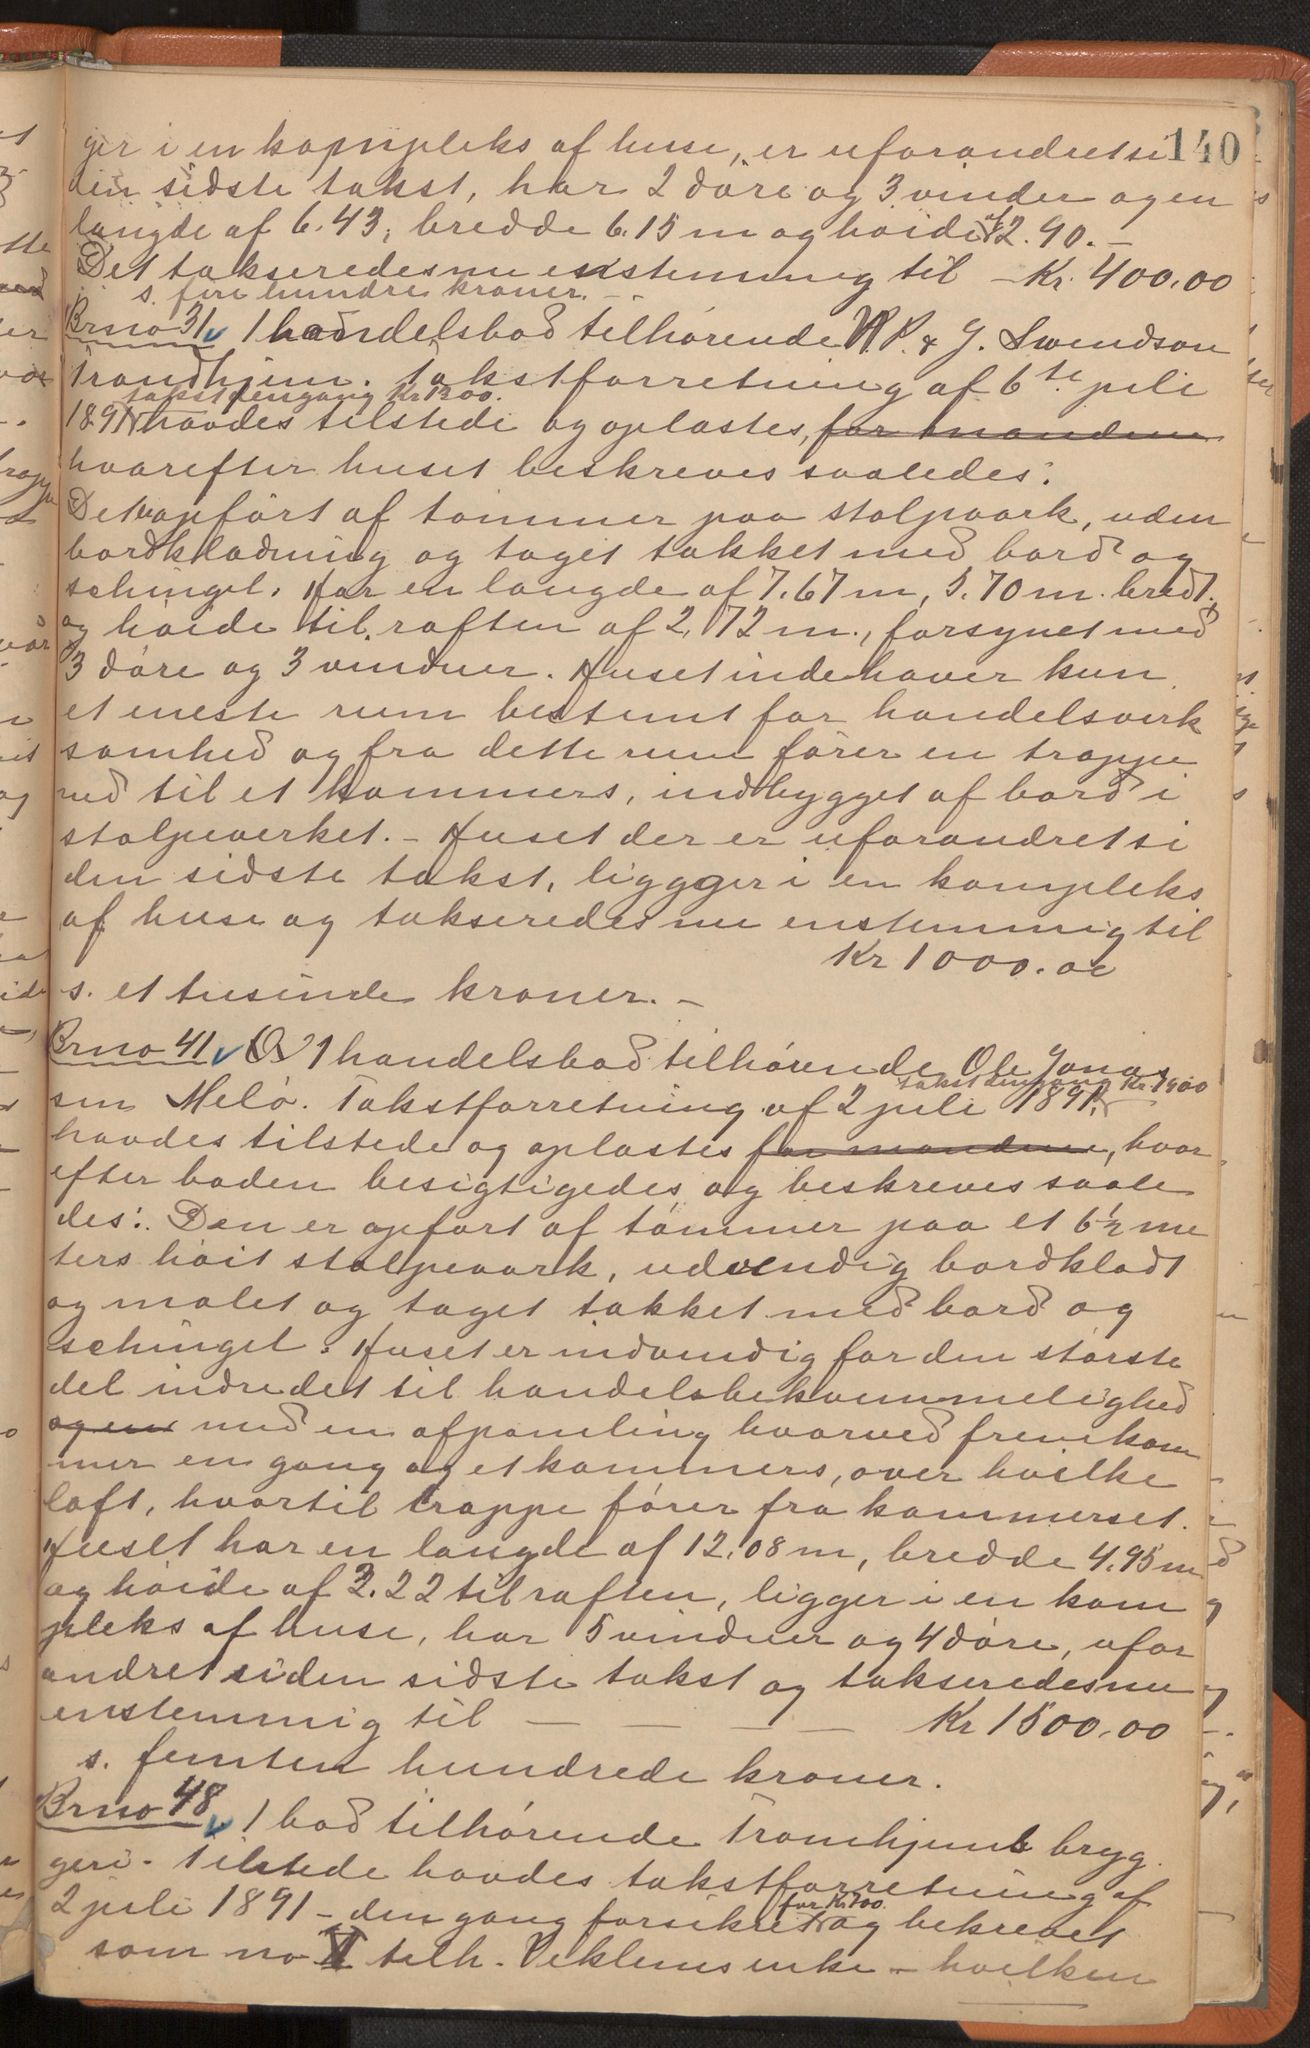 140
ger i en kompleks af huse, er uforandret si
den sidste takst, har 2 døre og 3 vinder og en
længde af 6.43, bredde 6.15 m og høide af 2.90. –
Det takseredes nu enstemmig til – Kr. 400.00
s. fire hundre kroner. –
Brno 31 1 handelsbod tilhørende P. & J. Svendson
Trondhjem. Takstforretning af 6te juli
takst dengang Kr. 1200.
1891 havdes tilstede og oplæstes, for mændene
hvorefter huset beskreves saaledes:
Det opført af tømmer paa stolpværk, uden
bordklædning og taget tækket med bord og
schingel. Har en længde af 7.67 m, 5.70 m. bredt
og høide til raften af 2,72 m., forsynet med
3 døre og 3 vinduer. Huset indehaver kun
et eneste rum bestemt for handelsvirk
somhed og fra dette rum fører en trappe
ned til et kammers, indbygget af bord i
stolpeverket. – Huset der er uforandret si
den sidste takst, liggger i en kompleks
af huse og takseredes nu enstemmig til
Kr 1000.00
s. et tusinde kroner. –
Brno 41 1 handelsbod tilhørende Ole Jonas
takst dengang Kr. 1900
sen Melø. Takstforretning af 2 juli 1891.
havdes tilstede og oplæstes for mændene, hvor
efter boden besigtigedes og beskreves saale
des: Den er opført af tømmer paa et 6½ me
ters høit stolpeværk, udvendig bordklædt
og malet og taget tækket med bord og
schingel. Huset er indvendig for den største
del indredet til handelsbekvemmelighed
og en med en afpanling hvorved fremkom
mer en gang og et kammers, over hvilke
loft, hvortil trappe fører fra kammerset.
Huset har en længde af 12.08 m, bredde 4.95 m
og høide af 2.22 til raften, ligger i en kom
pleks af huse, har 5 vinduer og 4 døre, ufor
andret siden sidste takst og takseredes nu
enstemmig til – – – – Kr 1500.00
s. femten hundrede kroner.
Brno 48 1 bod tilhørende Tromhjems bryg
geri. Tilstede havdes takstforretning af
for Kr. 700.
2 juli 1891 – den gang forsikret og bekrevet
som no VI tilh. Veklems enke – hvilken